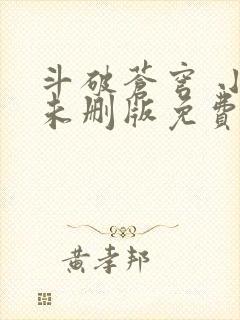 斗破苍穹 小
未删版免費
黄孝邦